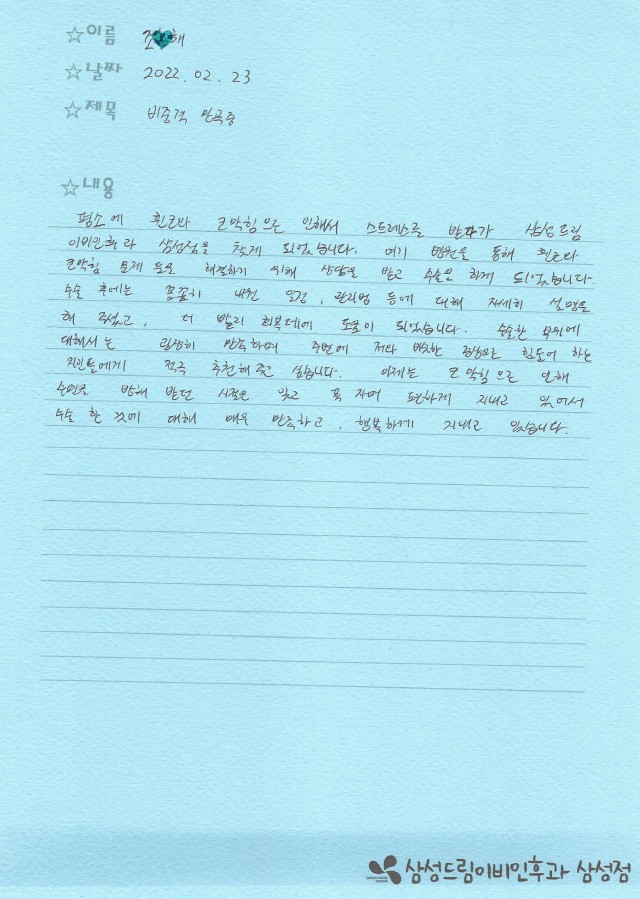 ☆이름 조 해
☆날짜 2022. 02. 23
☆제목 비중격 만곡증
☆내용
평소에 휜코와 코막힘으로 인해서 스트레스를 받다가 삼성드림
이비인후과 삼성점을 찾게 되었습니다. 여기 병원을 통해 휜코와
코막힘 문제 등을 해결하기 위해 상담을 받고 수술을 하게 되었습니다.
수술 후에는 꼼꼼히 내원 일정, 관리법 등에 대해 자세히 설명을
해 주셨고, 더 빨리 회복데에 도움이 되었습니다. 수술한 부위에
대해서는 굉장히 만족하며 주변에 저와 비슷한 증상으로 힘들어 하는
지인들에게 적극 추천해 주고 싶습니다. 이제는 코막힘으로 인해
수면을 방해 받던 시절은 잊고 푹 자며 편하게 지내고 있어서
수술 한 것에 대해 매우 만족하고, 행복하게 지내고 있습니다.
삼성드림이비인후과 삼성점